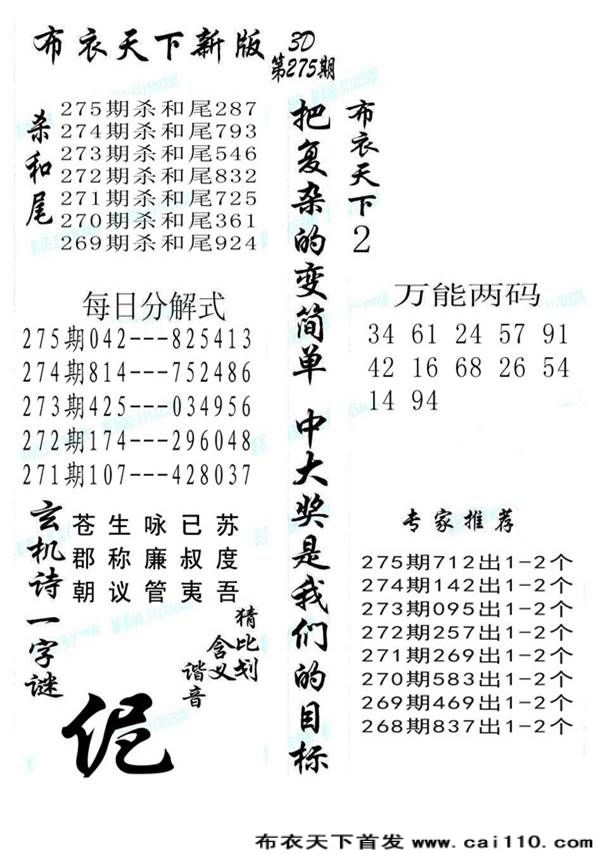 布衣天下新版
3D
第275期
杀和尾
275期杀和尾287
274期杀和尾793
273期杀和尾546
272期杀和尾832
271期杀和尾725
270期杀和尾361
269期杀和尾924
每日分解式
275期042---825413
274期814---752486
273期425---034956
272期174---296048
271期107---428037
玄机诗
苍生咏已苏
郡称廉叔度
朝议管夷吾
一字谜
猜比划
含义
谐音
伲
把复杂的变简单 中大奖是我们的目标
布衣天下2
万能两码
34 61 24 57 91
42 16 68 26 54
14 94
专家推荐
275期712出1-2个
274期142出1-2个
273期095出1-2个
272期257出1-2个
271期269出1-2个
270期583出1-2个
269期469出1-2个
268期837出1-2个
布衣天下首发 www.cai110.com